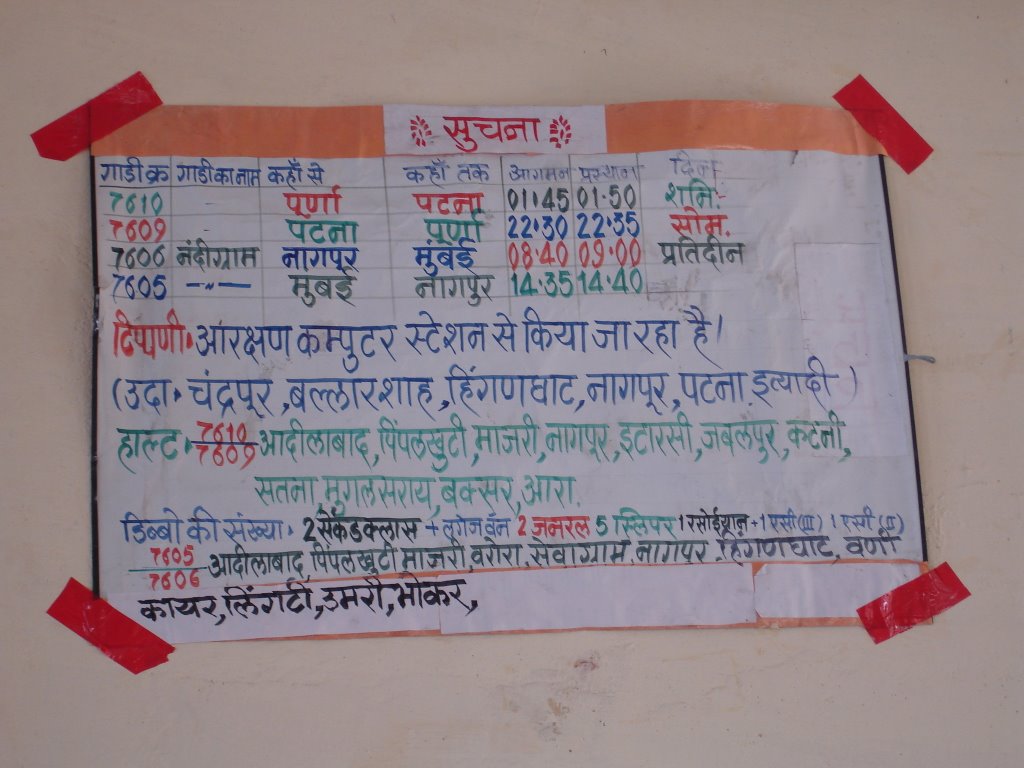 सुचना
गाडी क्र गाडी का नाम कहाँ से कहाँ तक आगमन प्रस्थान दिन
7610 - पूर्णा पटना 01:45 01:50 शनि.
7609 पटना पूर्णा 22:30 22:35 सोम.
7606 नंदीग्राम नागपूर मुंबई 08:40 09:00 प्रतिदीन
7605 —"— मुंबई नागपुर 14:35 14:40
टिप्पणी: आरक्षण कम्पुटर स्टेशन से किया जा रहा है।
(उदा. चंद्रपूर, बल्लारशाह, हिंगणघाट, नागपूर, पटना. इत्यादी)
हाल्ट. 7610/7609 आदीलाबाद, पिंपलखुटी, माजरी, नागपूर, इटारसी, जबलपुर, कटनी,
सतना, मुगलसराय, बक्सर, आरा.
डिब्बो की संख्या. 2 सेकंडक्लास + लगेज वॅन 2 जनरल 5 स्लिपर 1 रसोईयान + 1 एसी (III) 1 एसी (II)
7605/7606 आदीलाबाद, पिंपलखुटी, माजरी, वरोरा, सेवाग्राम, नागपूर, हिंगणघाट, वणी
कायर, लिंगटी, उमरी, भोकर,